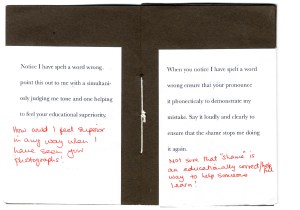 Notice I have spelt a word wrong.
point this out to me with a simultani-
ously judging me tone and one helping
to feel your educational superiority.
How could I feel superior
in any way when I
have seen your
photographs!
When you notice I have spelt a word
wrong ensure that your pronounce
it phonetically to demonstrate my
mistake. Say it loudly and clearly to
ensure that the shame stops me doing
it again.
Not sure that "shame" is
an educationally correct/helpful
way to help someone
learn!